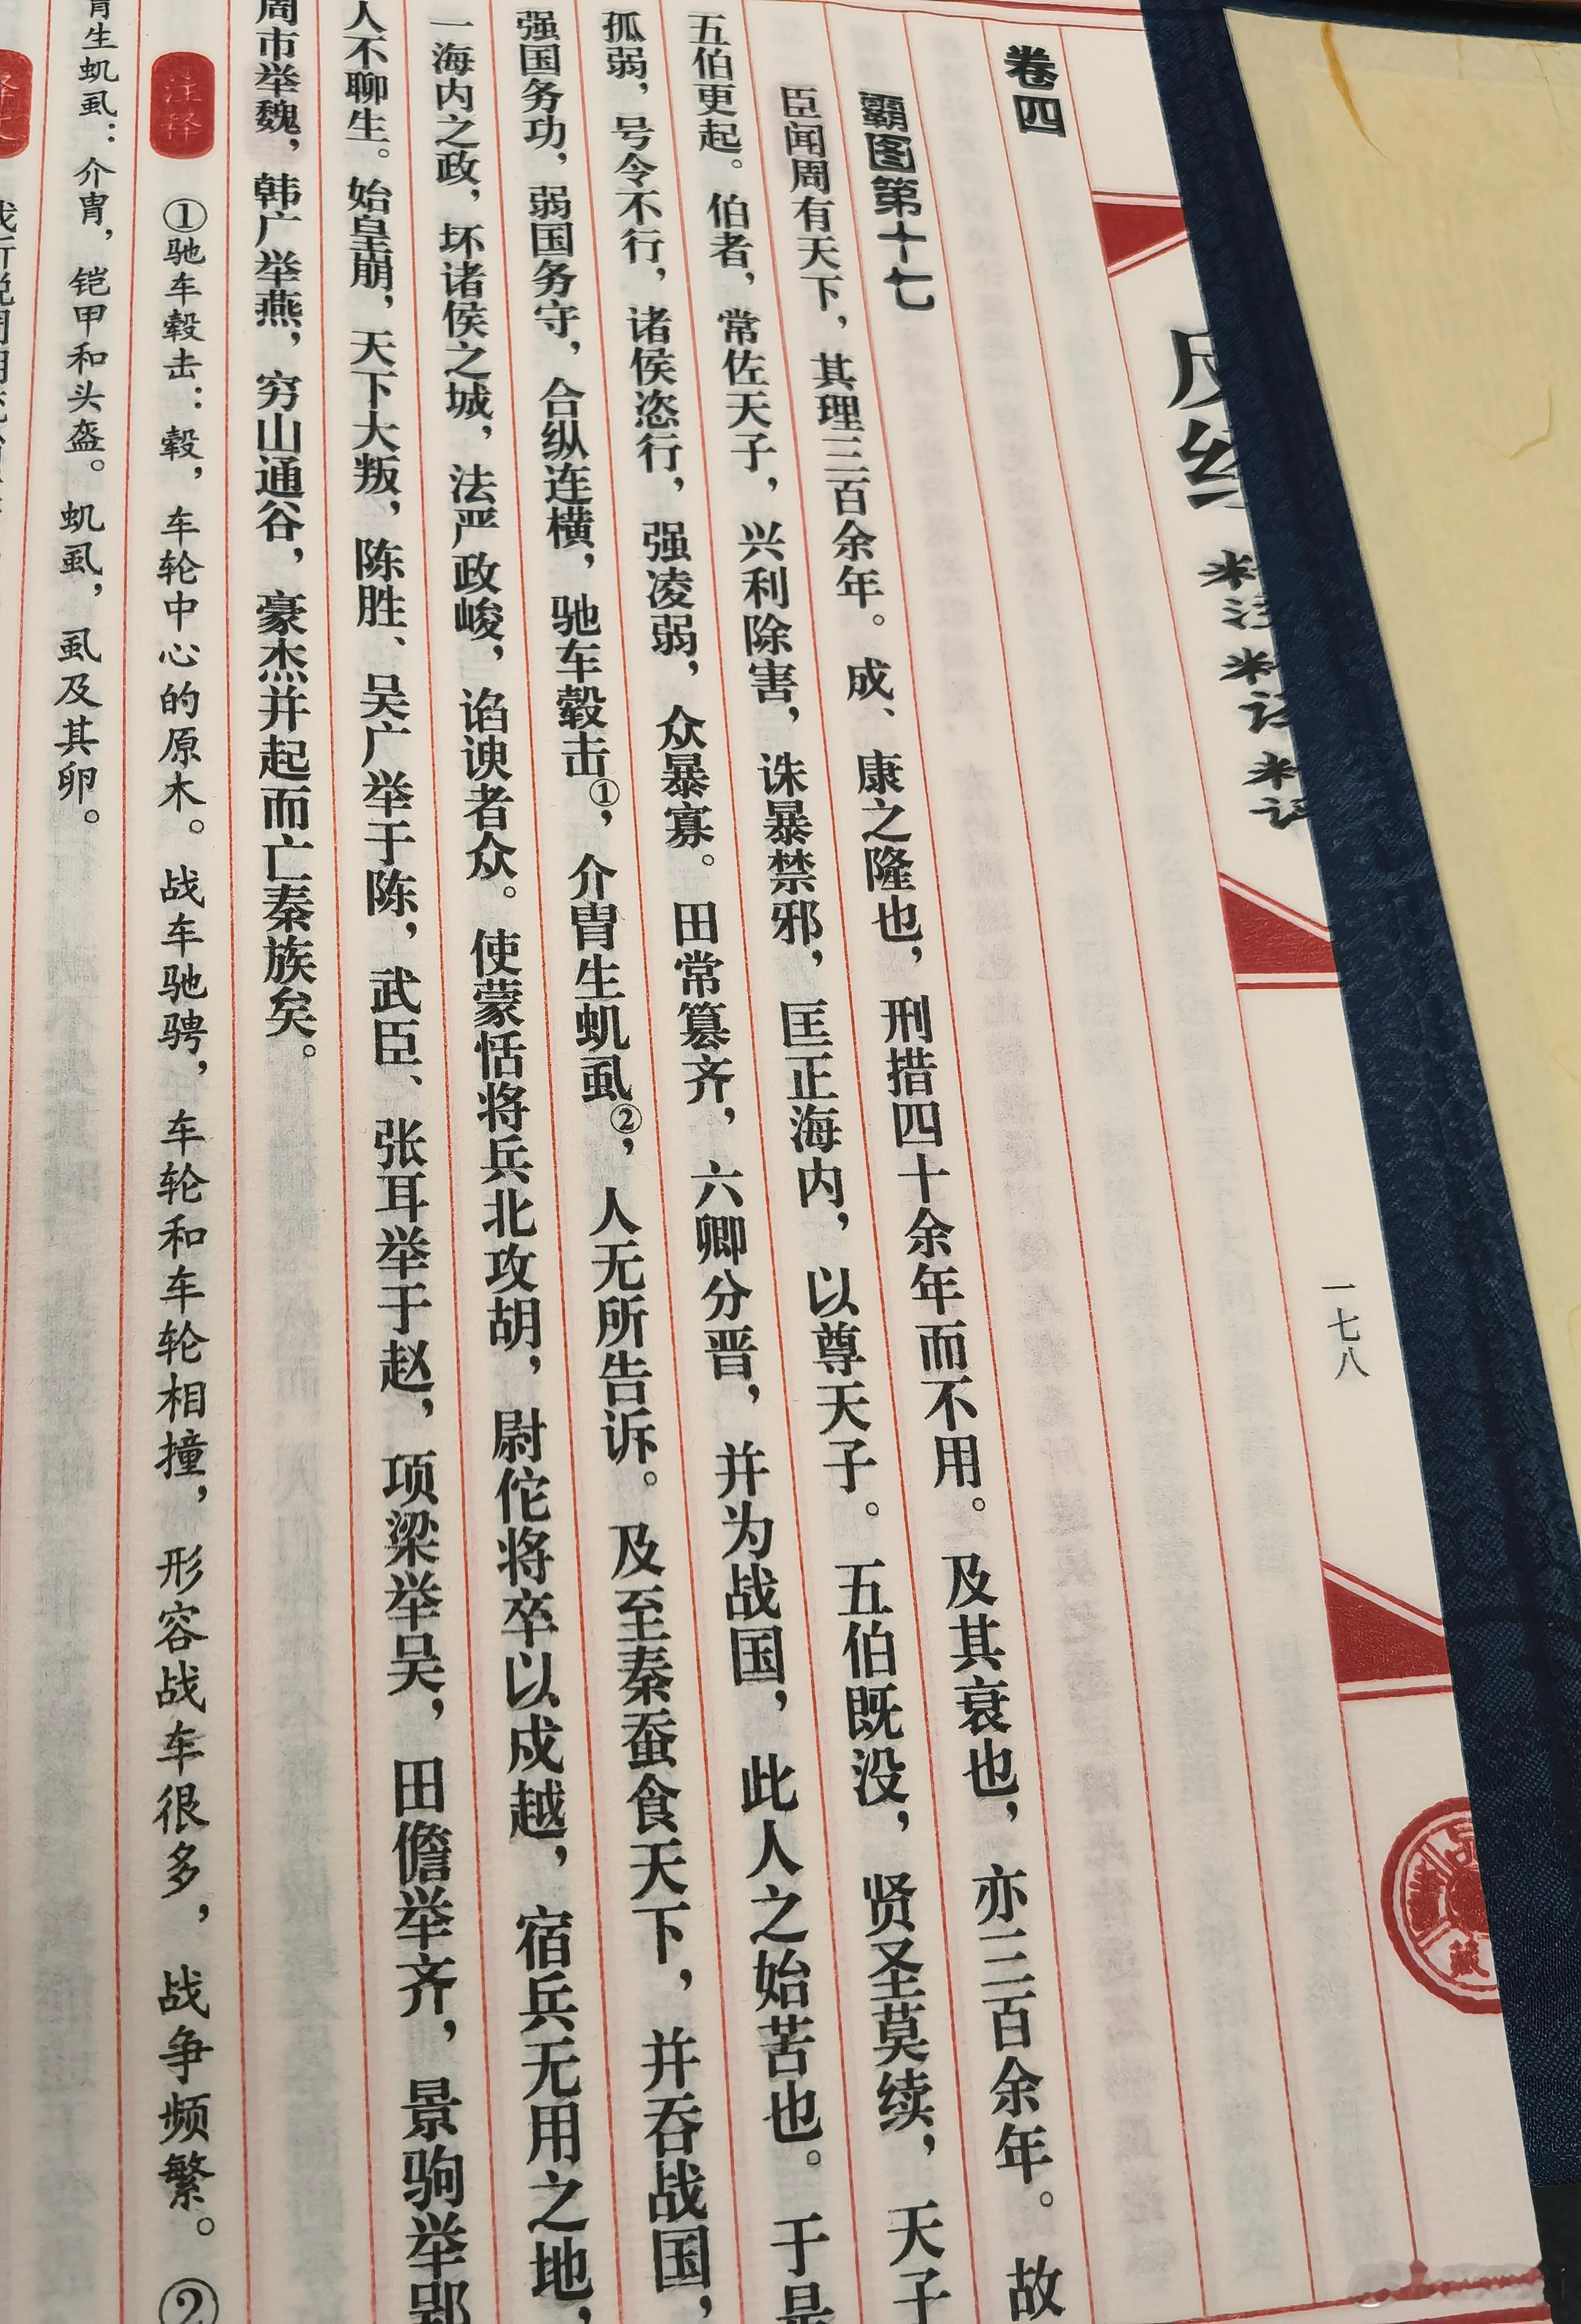 精注精评
一七八
藏
卷四
霸图第十七
臣闻周有天下，其理三百余年。成、康之隆也，刑措四十余年而不用。及其衰也，亦三百余年。故
五伯更起。伯者，常佐天子，兴利除害，诛暴禁邪，匡正海内，以尊天子。五伯既没，贤圣莫续，天子
孤弱，号令不行，诸侯恣行，强凌弱，众暴寡。田常篡齐，六卿分晋，并为战国，此人之始苦也。于是
强国务功，弱国务守，合纵连横，驰车毂击①，介胄生虮虱②，人无所告诉。及至秦蚕食天下，并吞战国，
一海内之政，坏诸侯之城，法严政峻，谄谀者众。使蒙恬将兵北攻胡，尉佗将卒以戍越，宿兵无用之地，
人不聊生。始皇崩，天下大叛，陈胜、吴广举于陈，武臣、张耳举于赵，项梁举吴，田儋举齐，景驹举郢
周市举魏，韩广举燕，穷山通谷，豪杰并起而亡秦族矣。
注释 ①驰车毂击：毂，车轮中心的原木。战车驰骋，车轮和车轮相撞，形容战车很多，战争频繁。②
胄生虮虱：介胄，铠甲和头盔。虮虱，虱及其卵。